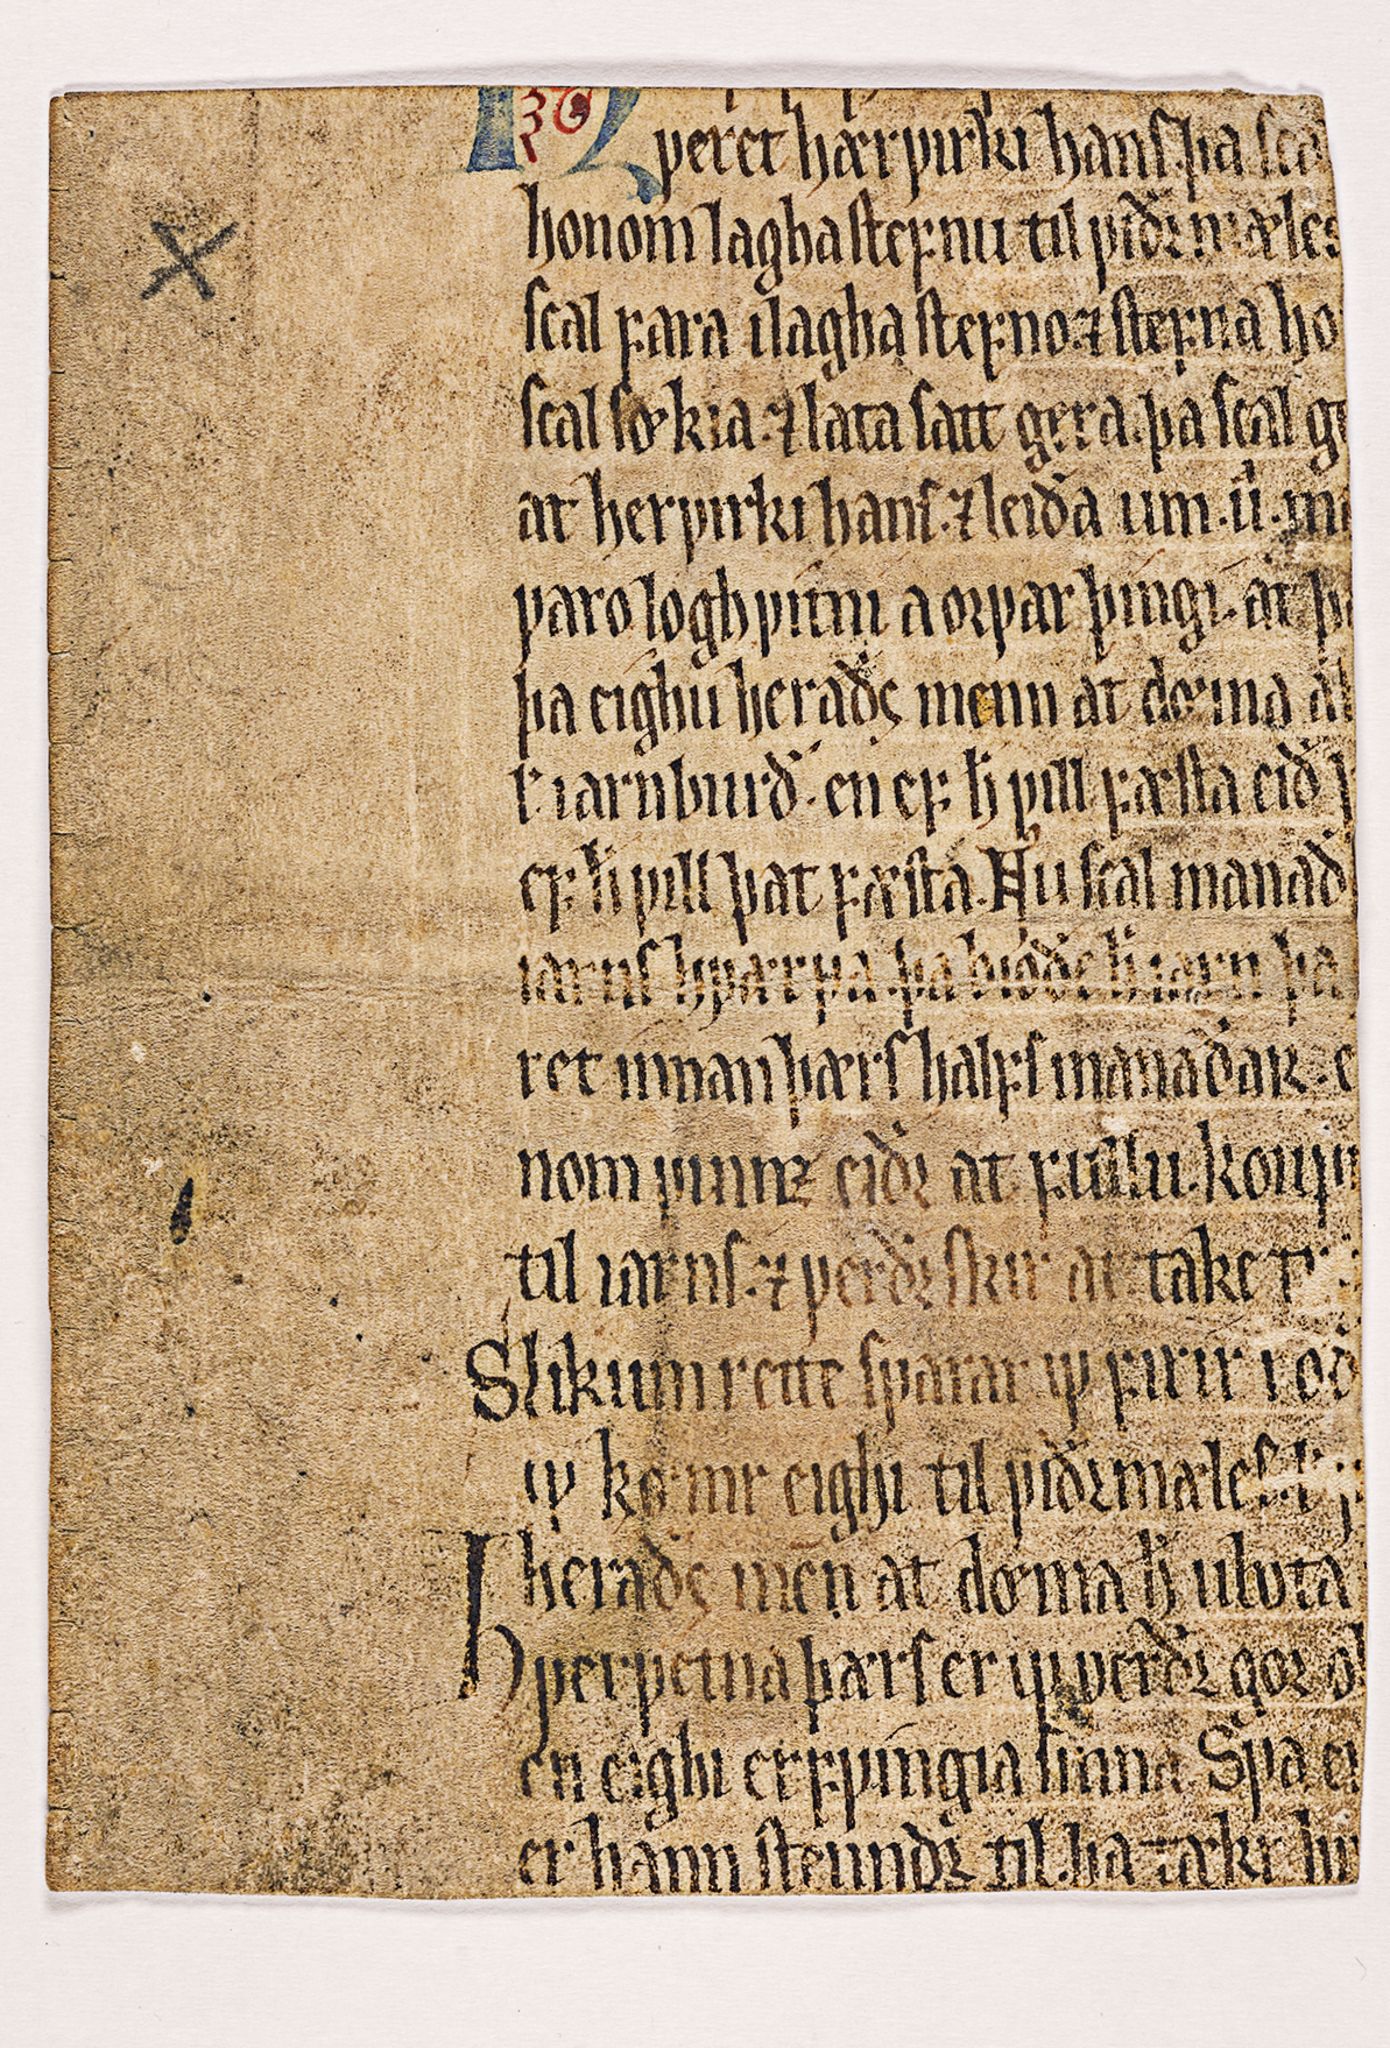 ꝩeret hærꝩirki hanſ. þa sca
honom laghasteꝼnu til ꝩiðꝛmæles
scal ꝼara i lagha steꝼno. ⁊ steꝼna ho
scal sœkia. ⁊ lata satt gera. þa scal ge
at herꝩirki hanſ. ⁊ leiða um. ii. me
ꝩaro loghꝩitni a oꝛꝩar þingi. at þ
þa eighu heraðs menn at dœma a
iarnburð. en eꝼ h̄ ꝩill ꝼæsta eið
eꝼ h̄ ꝩill þat ꝼæsta. Nu scal manað
iarnſ hꝩærꝩa. þa bioðe h̄ iarn þa
ret innan þærſ halꝼſ manaðar. e
nom ꝩinnꝛ eiðꝛ at ꝼullu. konꝩ
til iarnſ. ⁊ ꝩerðꝛ skir at take
Slikum rette sꝩarar ꝩ ꝼirir
ꝩ kœmr eighi til ꝩiðꝛmæleſ.
heraðs men at dœma h̄ utlota
hꝩerꝩetna þærſ er ꝩerðꝛ goꝛ
en eighi erꝼꝩingia sinna. Sꝩa e
er hann steundꝛ til. þa tækr hi